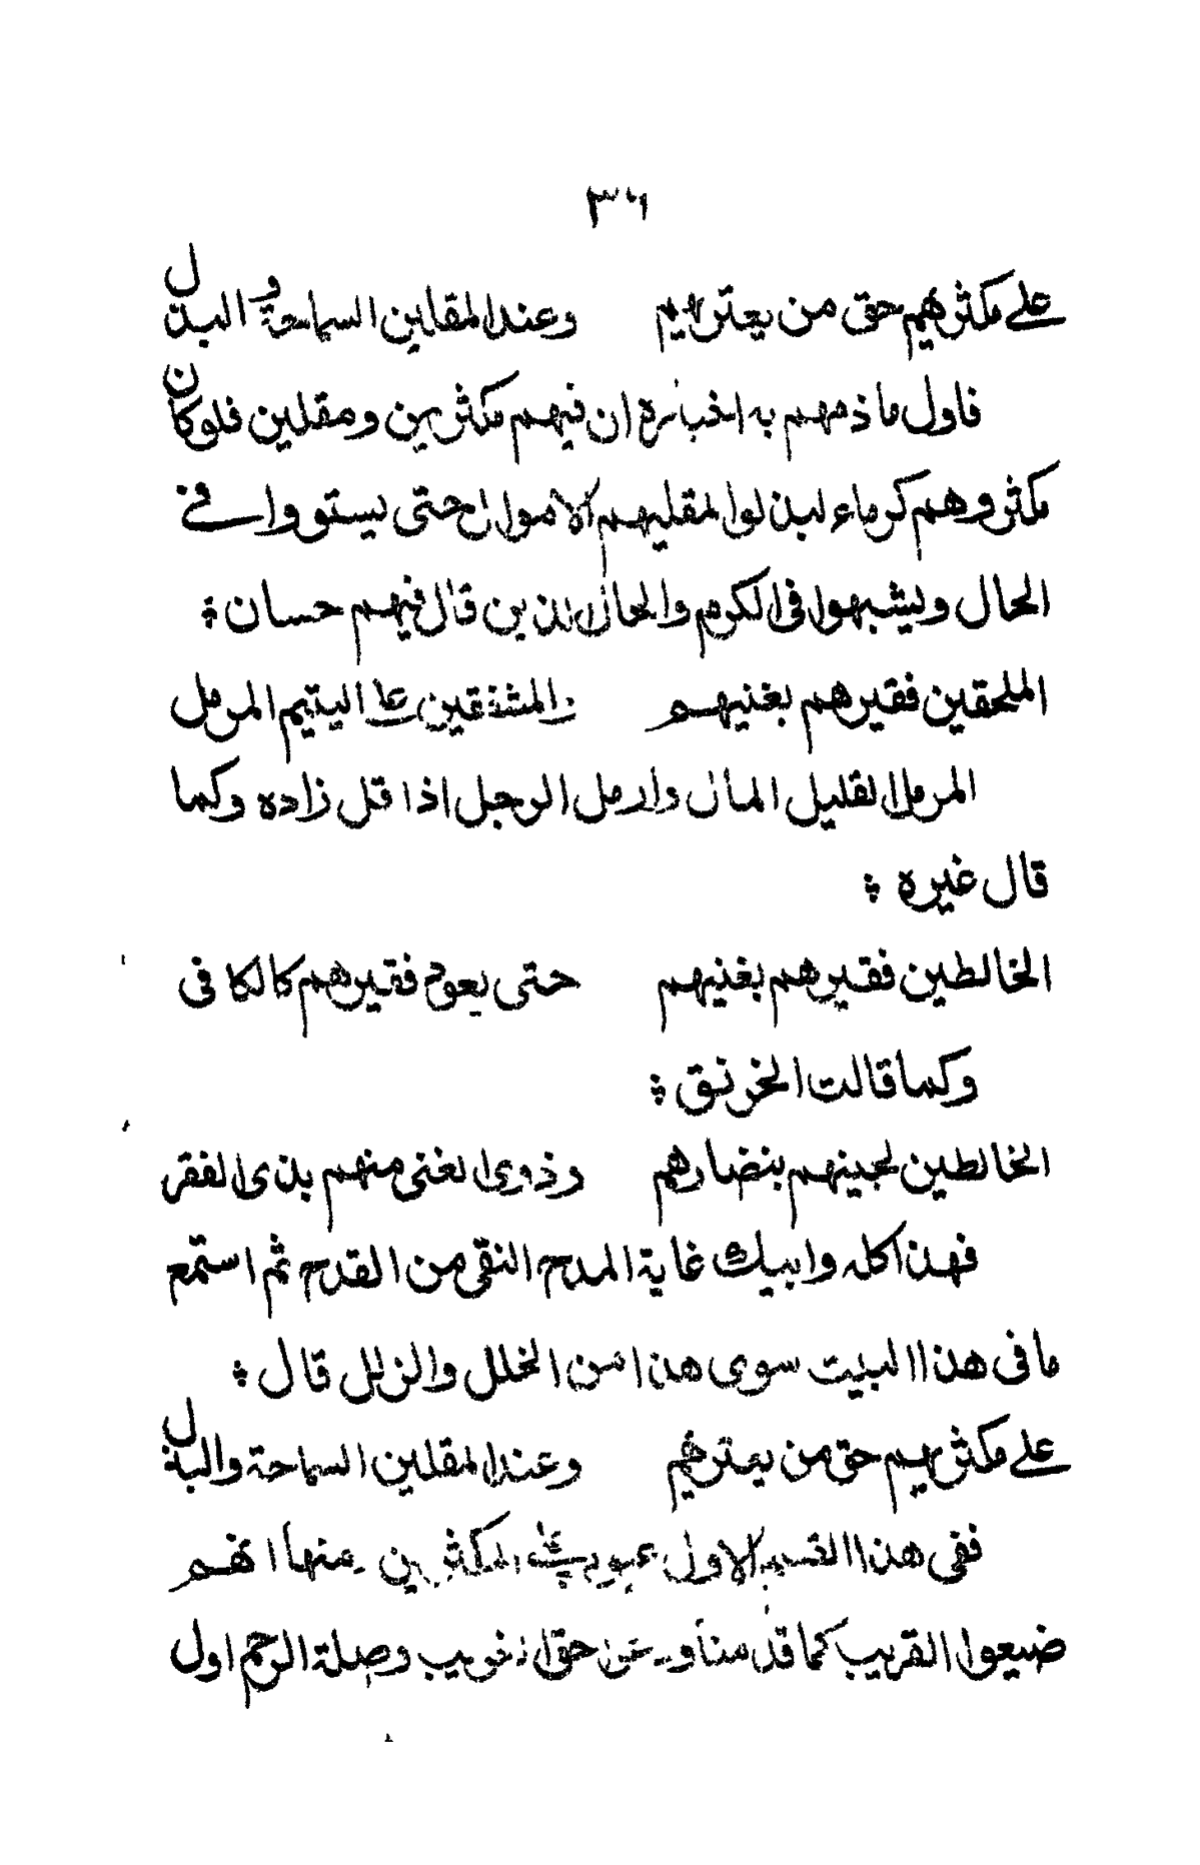 ٣٦
على مكثريهم حق من يعتريهم وعند المقلين السماحة والبذل
فاول ما ذمهم به اخباره ان فيهم مكثرين ومقلين فلو كان
مكثروهم كرماء لبذلوا لمقليهم الاموال حتى يستووا فى
الحال ويشبهوا فى الكرم والحال الذين قال فيهم حسان :
الملحقين فقيرهم بغنيهم والمشفقين على اليتيم المرمل
المرمل القليل المال وارمل الرجل اذا قل زاده وكما
قال غيره :
الخالطين فقيرهم بغنيهم حتى يعود فقيرهم كالكافى
وكما قالت الخرنق :
الخالطين لجينهم بنضارهم وذوى الغنى منهم بذى الفقر
فهذا كله وابيك غاية المدح النقى من القدح ثم استمع
ما فى هذا البيت سوى هذا من الخلل والزلل قال :
على مكثريهم حق من يعتريهم وعند المقلين السماحة والبذل
ففى هذا القسم الاول عيوب على المكثرين منها انهم
ضيعوا القريب كما قدمنا حق الغريب وصلة الرحم اول